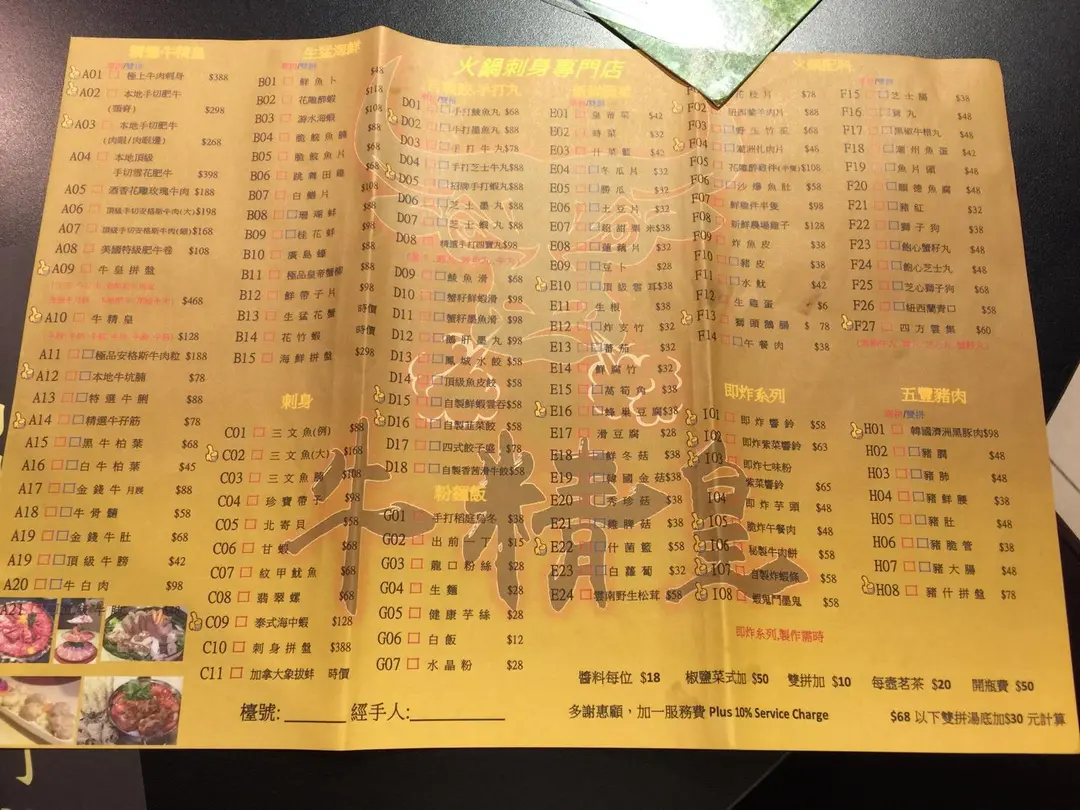 火鍋刺身專門店
A01 極上牛肉刺身 $388
A02 本地手切肥牛
(頸脊) $298
A03 本地手切肥牛
(肉眼/肉眼邊) $268
A04 本地頂級
手切雪花肥牛 $398
A05 酒香花雕玫瑰牛肉 $188
A06 頂級手切安格斯牛肉(大) $198
A07 頂級手切安格斯牛肉(細) $168
A08 美國特級肥牛卷 $108
A09 牛皇拼盤
$468
A10 牛精皇
$128
A11 極品安格斯牛肉粒 $188
A12 本地牛坑腩 $78
A13 特選牛脷 $88
A14 精選牛孖筋 $78
A15 黑牛柏葉 $68
A16 白牛柏葉 $45
A17 金錢牛月展 $88
A18 牛骨髓 $58
A19 金錢牛肚 $68
A19 頂級牛膀 $42
A20 牛白肉 $98
A21
生猛海鮮
B01 鮮魚卜 $48
B02 花雕醉蝦
B03 游水海蝦
B04 脆鯇魚腩
B05 脆鯇魚片
B06 跳舞田雞
B07 白鱔片
B08 珊瑚蚌
B09 桂花蚌
B10 廣島蠔
B11 極品皇帝蟹柳
B12 鮮帶子片 $98
B13 生猛花蟹 時價
B14 花竹蝦 時價
B15 海鮮拼盤 $298
刺身
C01 三文魚(例) $88
C02 三文魚(大) $168
C03 三文魚腩 $108
C04 珍寶帶子 $98
C05 北寄貝 $58
C06 甘蝦 $68
C07 紋甲魷魚 $68
C08 翡翠螺 $68
C09 泰式海中蝦 $128
C10 刺身拼盤 $388
C11 加拿大象拔蚌 時價
D01 手打鯪魚丸 $68
D02 手打墨魚丸 $88
D03 手打牛丸 $78
D04 手打芝士牛丸 $88
D05 招牌手打蝦丸 $88
D06 芝士墨丸 $88
D07 芝士蝦丸 $88
D08 精選手打四寶丸 $98
D09 鯪魚滑 $68
D10 蟹籽鮮蝦滑 $98
D11 蟹籽墨魚滑 $98
D12 鵝肝墨丸 $98
D13 鳳城水餃 $58
D14 頂級魚皮餃 $58
D15 自製鮮蝦雲吞 $58
D16 自製韮菜餃 $58
D17 四式餃子盛 $78
D18 自製香茜滑牛餃 $58
粉麵飯
G01 手打稻庭烏冬 $38
G02 出前一丁 $15
G03 龍口粉絲 $28
G04 生麵 $28
G05 健康芋絲 $28
G06 白飯 $12
G07 水晶粉 $28
E01 皇帝菜 $42
E02 時菜 $32
E03 什菜籃 $42
E04 冬瓜片 $32
E05 勝瓜 $32
E06 土豆片 $32
E07 超甜粟米 $38
E08 蓮藕片 $32
E09 豆卜 $28
E10 頂級雲耳 $38
E11 生根 $38
E12 炸支竹 $32
E13 蕃茄 $32
E14 鮮腐竹 $32
E15 萵筍角 $38
E16 蜂巢豆腐 $38
E17 滑豆腐 $28
E18 鮮冬菇 $38
E19 韓國金菇 $38
E20 秀珍菇 $38
E21 雞脾菇 $38
E22 什菌籃 $58
E23 白蘿蔔 $32
E24 雲南野生松茸 $58
火鍋配料
花枝片 $78
F02 紐西蘭羊肉片 $88
F03 野玉竹笙 $68
F04 潮洲札肉片 $48
F05 花雕醉雞件(半隻) $108
F06 沙爆魚肚 $58
F07 鮮雞件半隻 $98
F08 新鮮農場雞子 $128
F09 炸魚皮 $38
F10 豬皮 $38
F11 水魷 $42
F12 生雞蛋 $6
F13 獅頭鵝腸 $78
F14 午餐肉 $38
F15 芝士腸 $38
F16 貢丸 $48
F17 黑椒牛根丸 $48
F18 潮州魚蛋 $42
F19 魚片頭 $48
F20 順德魚腐 $48
F21 豬紅 $32
F22 獅子狗 $38
F23 飽心蟹籽丸 $48
F24 飽心芝士丸 $48
F25 芝心獅子狗 $68
F26 紐西蘭青口 $58
F27 四方雲集 $60
即炸系列
I01 即炸響鈴 $58
I02 即炸紫菜響鈴 $63
I03 即炸七味粉
紫菜響鈴 $65
I04 即炸芋頭 $48
I05 脆炸午餐肉 $48
I06 秘製牛肉餅 $58
I07 自製炸蝦條 $58
I08 蝦鬼鬥墨鬼 $58
即炸系列,製作需時
五豐豬肉
單拼/雙拼
H01 韓國濟洲黑豚肉 $98
H02 豬膶 $48
H03 豬肺 $48
H04 豬鮮腰 $38
H05 豬肚 $48
H06 豬脆管 $38
H07 豬大腸 $48
H08 豬什拼盤 $78
牛精皇
醬料每位 $18 椒鹽菜式加 $50 雙拼加 $10 每壺茗茶 $20 開瓶費 $50
檯號:______ 經手人:__________
多謝惠顧，加一服務費 Plus 10% Service Charge
$68 以下雙拼湯底加$30 元計算